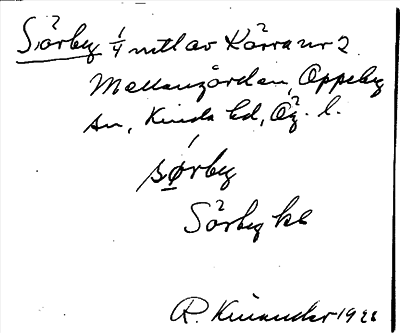 Sörby 1/4 mtl av Körra nr 2
Mellangården, Oppeby
sn, Kinda hd, Ög. l.
sørby
Sörby kl
R. Kinander 19